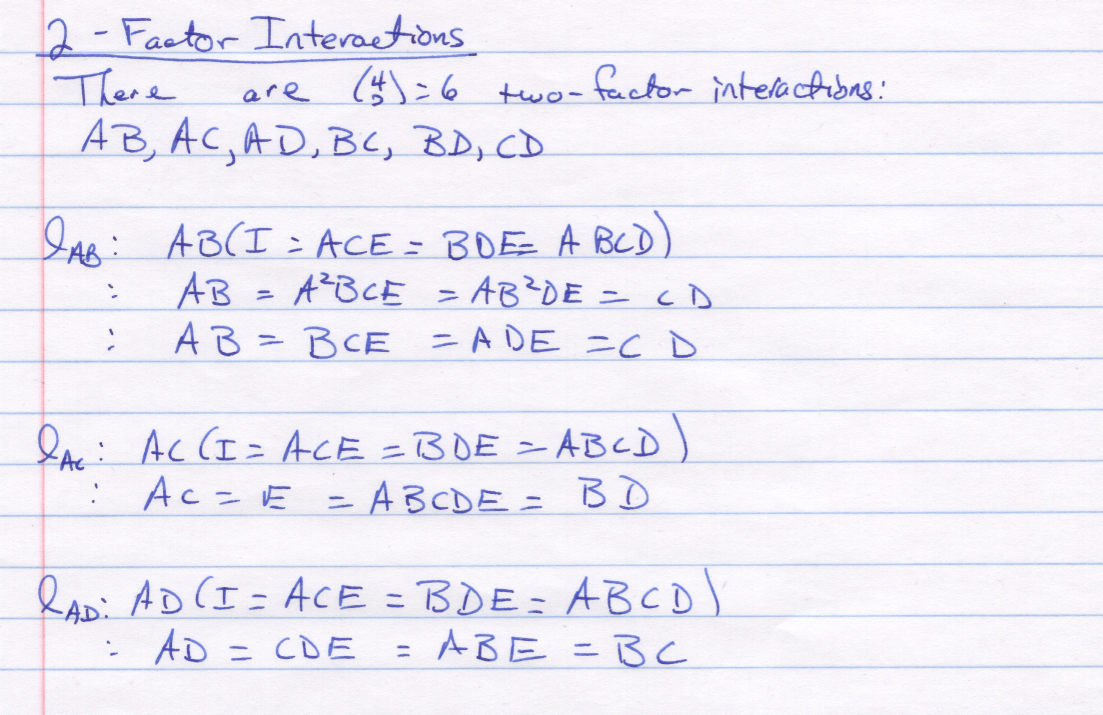 2 - Factor Interactions
There are (4 2) = 6 two-factor interactions:
AB, AC, AD, BC, BD, CD
l_AB: AB(I = ACE = BDE = ABCD)
: AB = A²BCE = AB²DE = CD
: AB = BCE = ADE = CD
l_AC: AC(I = ACE = BDE = ABCD)
: AC = E = ABCDE = BD
l_AD: AD(I = ACE = BDE = ABCD)
: AD = CDE = ABE = BC